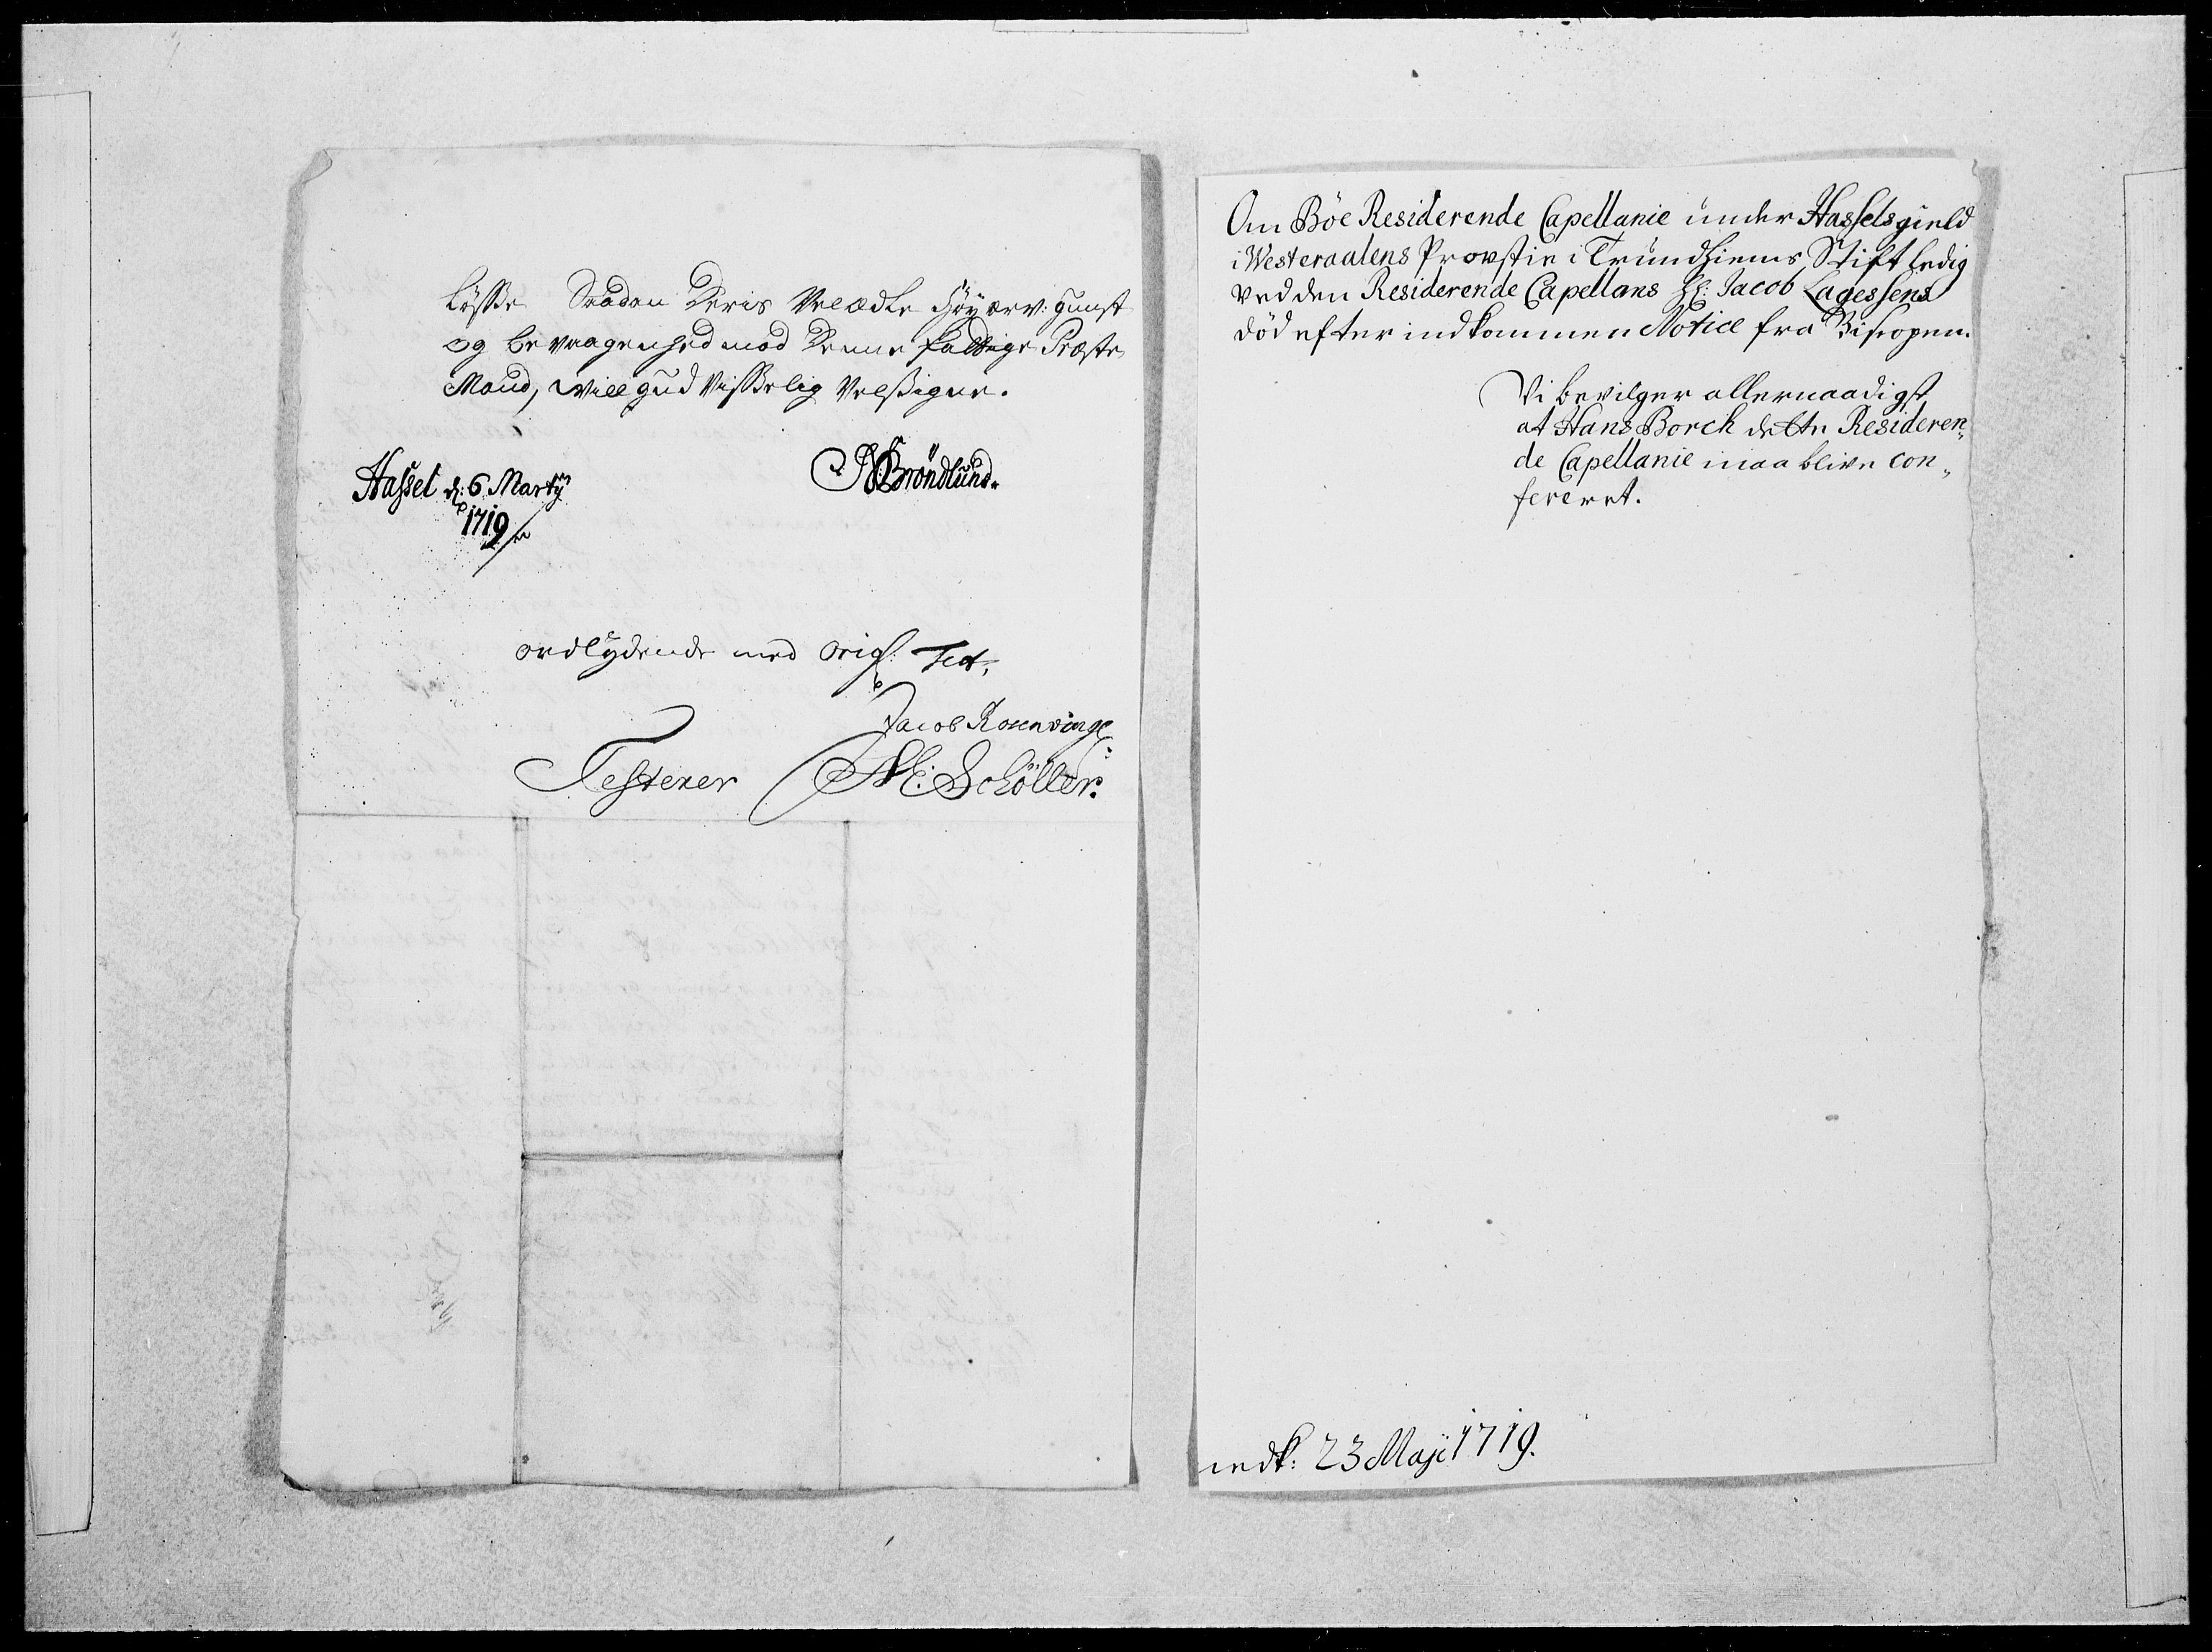 Saadan Deris Velædle Høyærv: gunst
og bevaagenhed mod Denne fattige Præste
Mand, will gud visselig velsigne.
Hassel d: 6 Martÿ
1719
Brøndlund.
ordlydende med orig:
Jacob Rosenvinge
Testerer M: Schöller.
Om Böe Residerende Capellanie under Hassels gield
i Westeraalens Provstie i Trundhiems Stift ledig
ved den Residerende Capellans Hr: Jacob Lagessens
död efter indkommen Notice fra Bispen.
Vi bevilger allernaadigst
at Hans Borch dette Residеren„
de Capellanie maa blive con„
fereret.
indk: 23 Maji 1719.